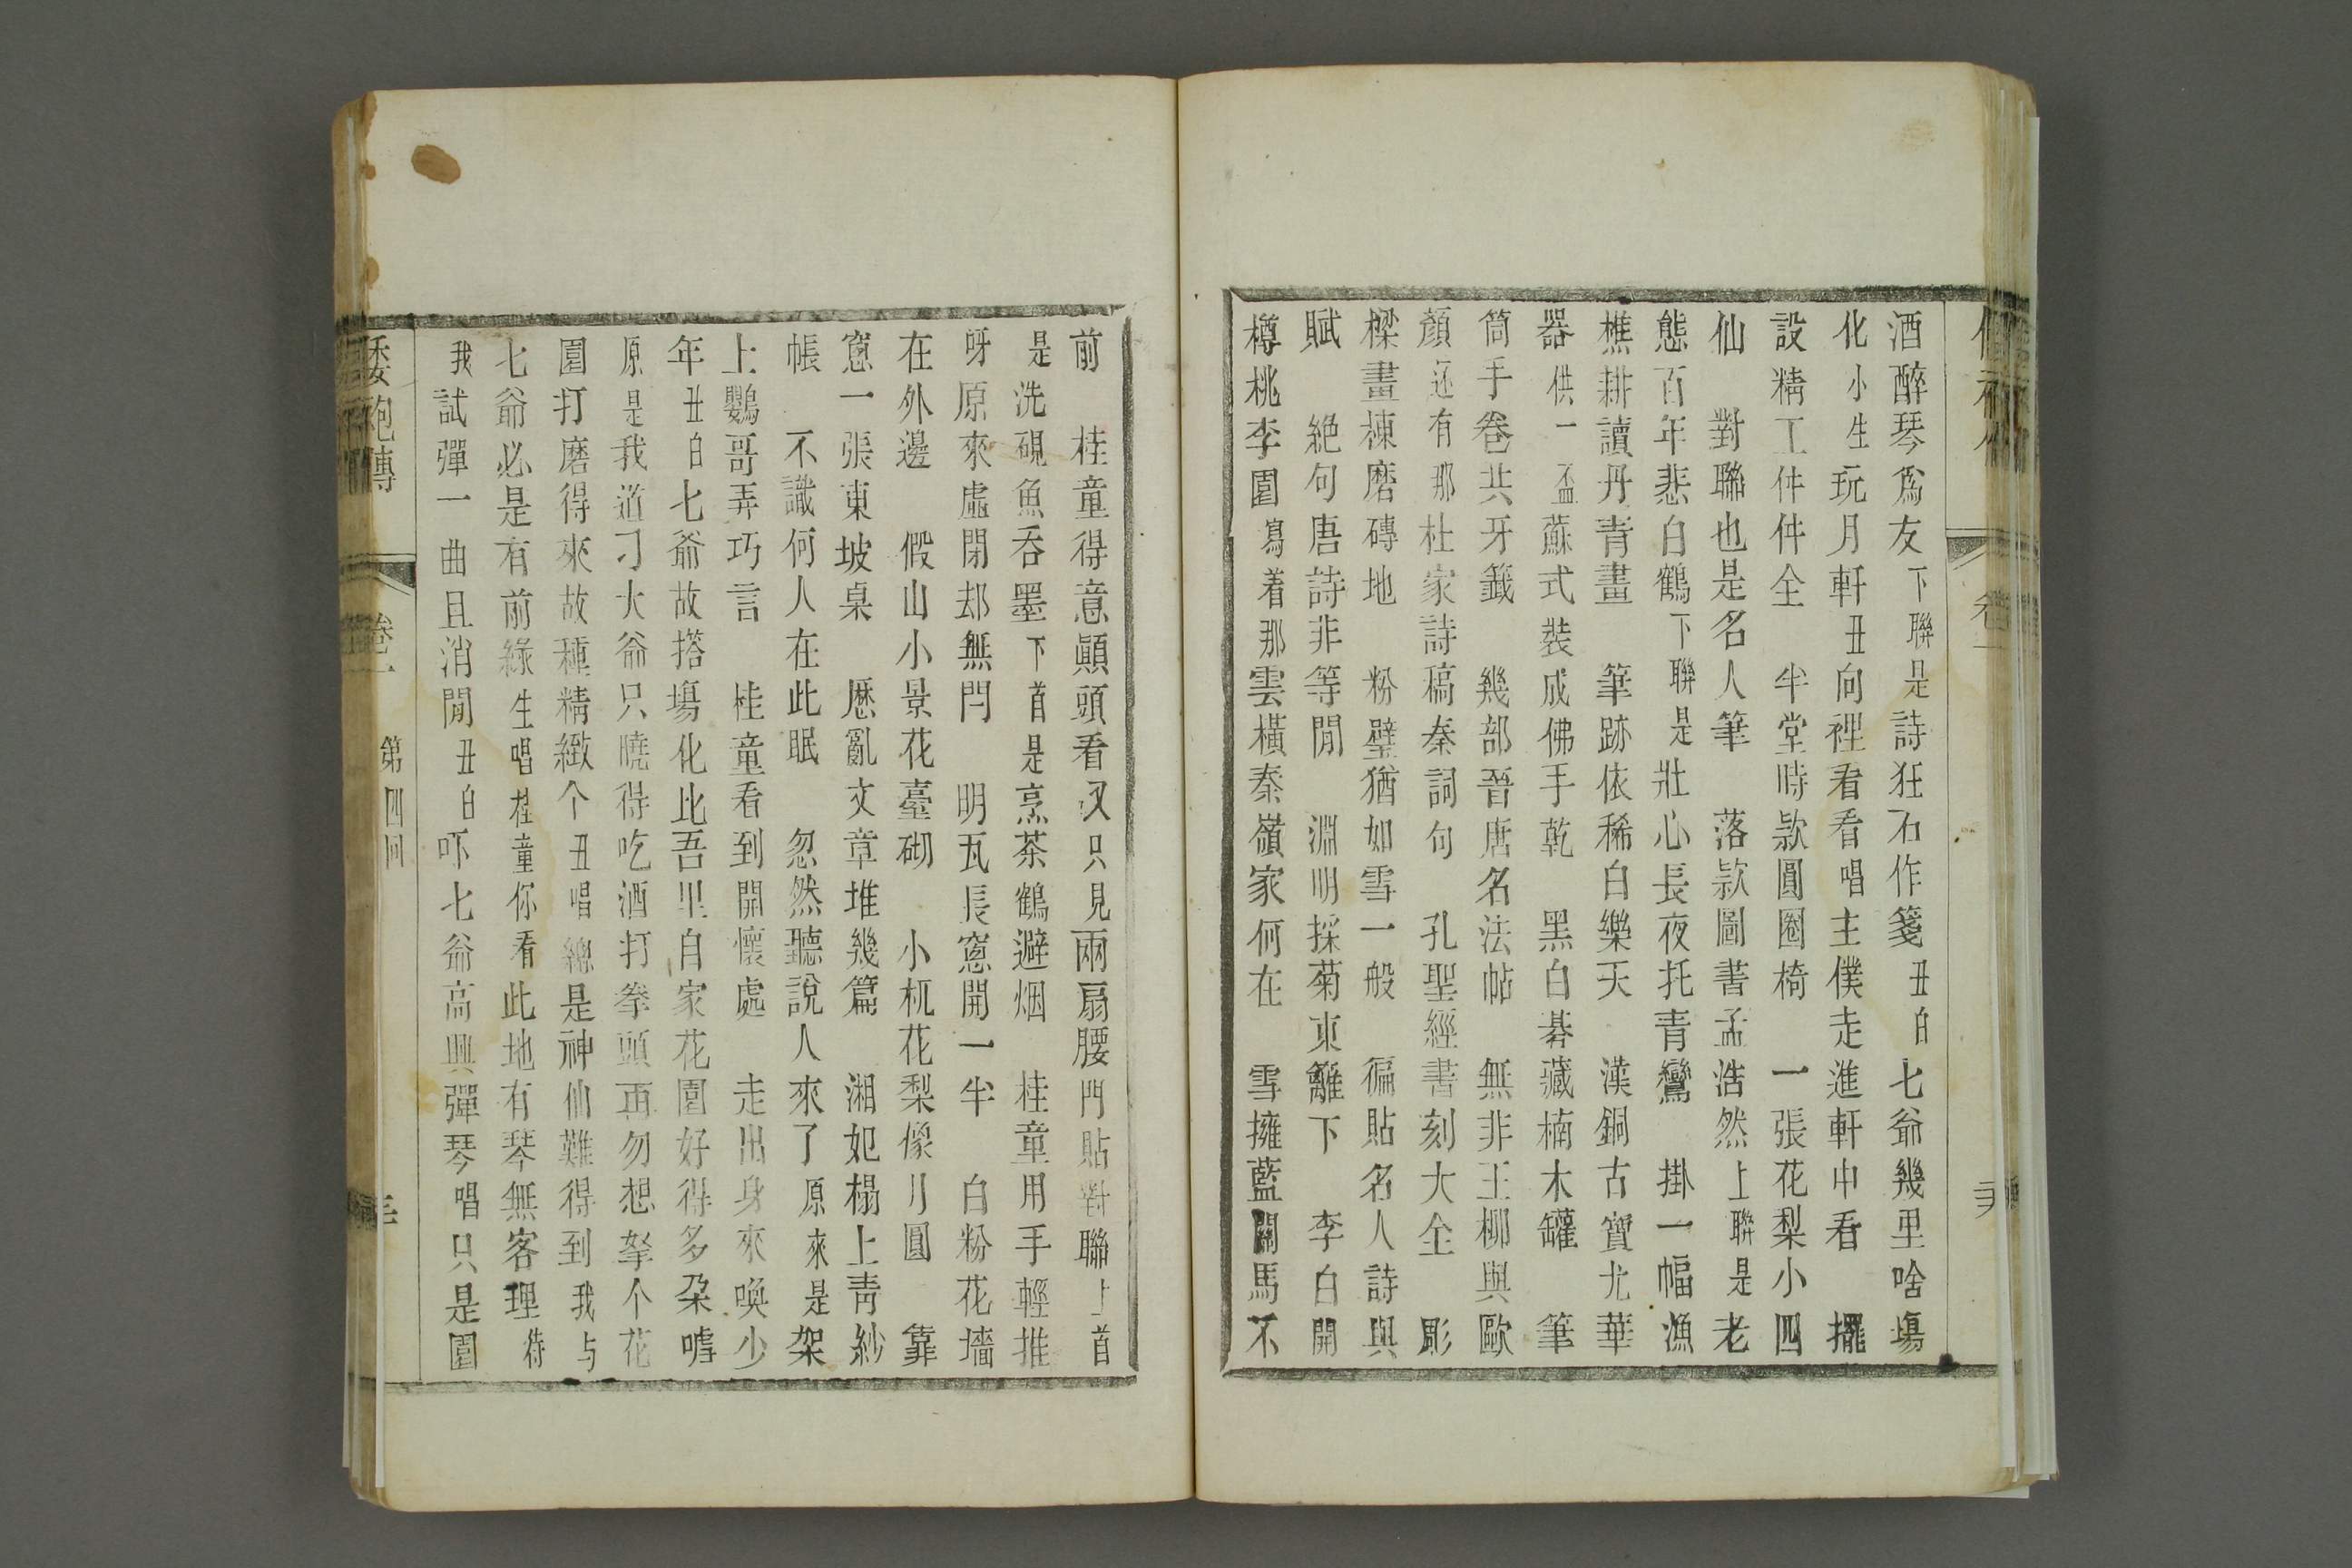 酒醉琴爲友下聯是詩狂石作箋丑白七爺幾里啥塲
化小生玩月軒丑向裡看看唱主僕走進軒中看 擺
設精工件件全 半堂時款圓圈椅 一張花梨小四
仙 對聯也是名人筆 落款圖書孟浩然上聯是老
態百年悲白鶴下聯是壯心長夜托青鸞 掛一幅漁
樵耕讀丹青畫 筆跡依稀白樂天 漢銅古寶尤華
器供一盃蘇式裝成佛手乾 黑白碁藏楠木罐 筆
筒手卷共牙籤 幾部晉唐名法帖 無非王柳與歐
顏还有那杜家詩稿秦詞句 孔聖經書刻大全 彫
樑畫棟磨磚地 粉壁猶如雪一般 徧貼名人詩與
賦 絶句唐詩非等閒 淵明採菊東籬下 李白開
樽桃李園寫着那雲橫秦嶺家何在 雪擁藍關馬不
前 桂童得意顚頭看又只見兩扇腰門貼對聯上首
是洗硯魚吞墨下首是烹茶鶴避烟 桂童用手輕推
呀原來虛閉却無閂 明瓦長窻開一半 白粉花墻
在外邊 假山小景花臺砌 小杌花梨像月圓 靠
窻一張東坡桌 歷亂文章堆幾篇 湘妃榻上青紗
帳 不識何人在此眠 忽然聽說人來了原來是架
上鸚哥弄巧言 桂童看到開懷處 走出身來喚少
年丑白七爺故搭塲化比吾里自家花園好得多朶嘑
原是我道刁大爺只曉得吃酒打拳頭再勿想拏个花
園打磨得來故種精緻个丑唱總是神仙難得到我与
七爺必是有前緣生唱桂童你看此地有琴無客理待
我試彈一曲且消閒丑白吓七爺高興彈琴唱只是園
倭袍傳 卷一 第四回